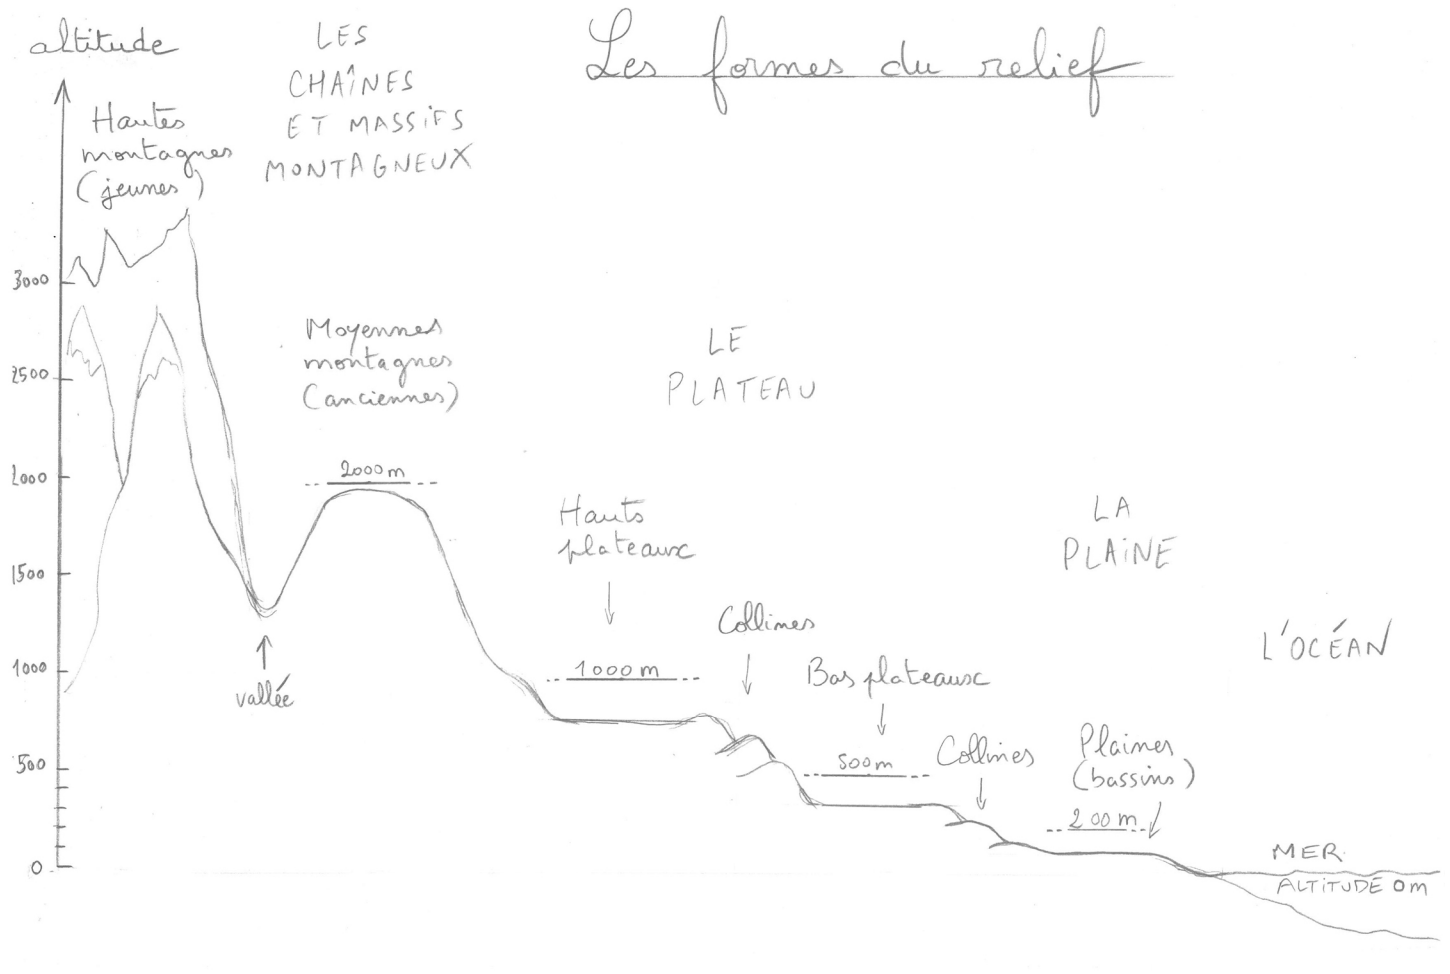 Les formes du relief
altitude
LES
CHAÎNES
ET MASSIFS
MONTAGNEUX
Hautes
montagnes
(jeunes)
3000
2500
2000
1500
1000
500
0
Moyennes
montagnes
(anciennes)
2000 m
vallée
LE
PLATEAU
Hauts
plateaux
1000 m
Collines
Bas plateaux
500 m
Collines
LA
PLAINE
Plaines
(bassins)
200 m
L'OCÉAN
MER
ALTITUDE 0 m